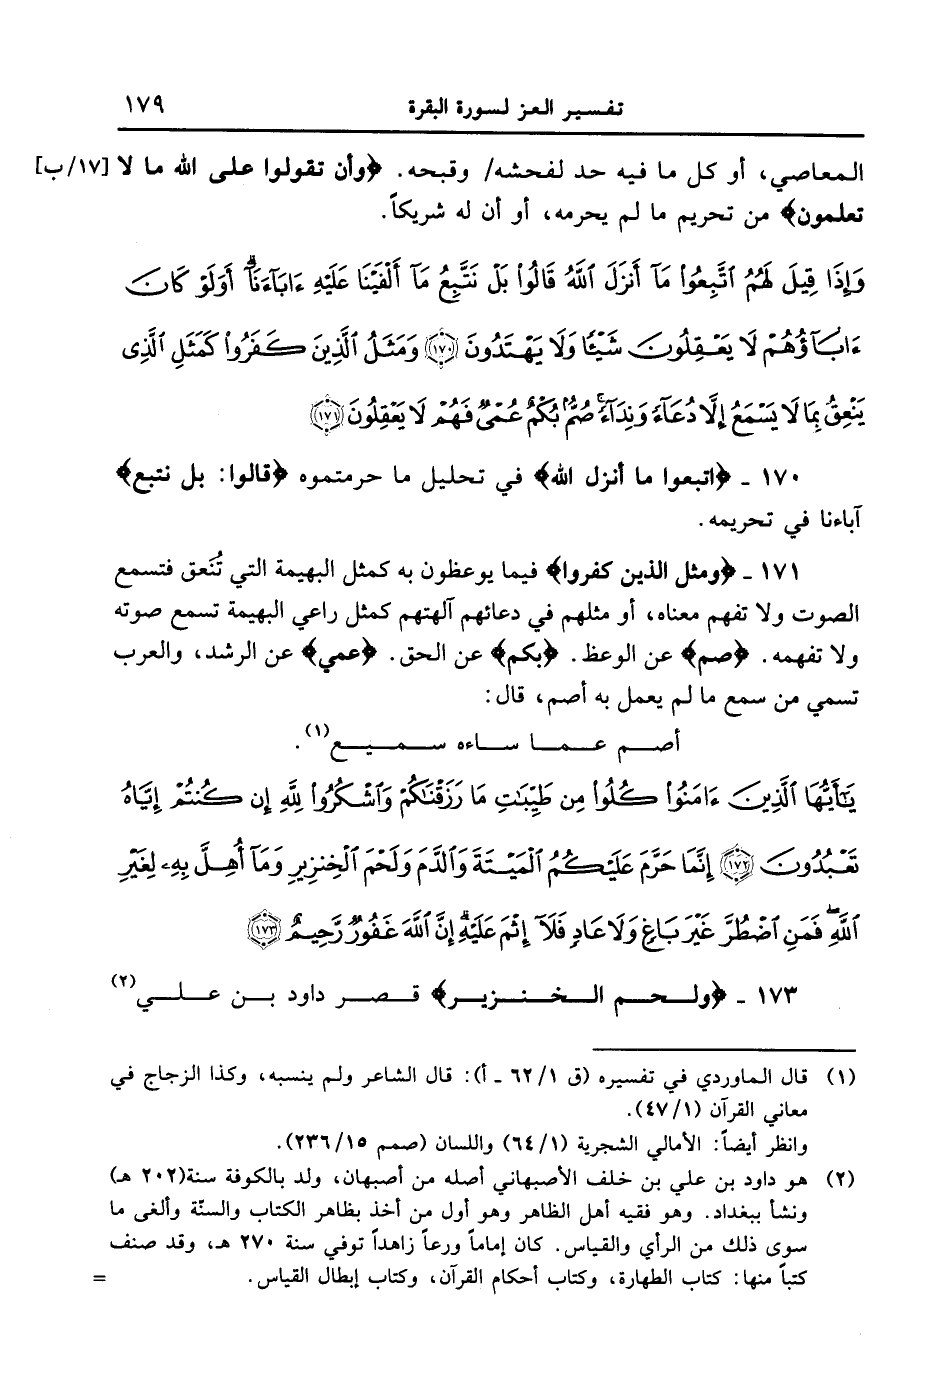 تفسير العز لسورة البقرة ١٧٩
المعاصي، أو كل ما فيه حد لفحشه/ وقبحه. ﴿وأن تقولوا على الله ما لا [١٧/ب]
تعلمون﴾ من تحريم ما لم يحرمه، أو أن له شريكاً.
وَإِذَا قِيلَ لَهُمُ ٱتَّبِعُوا۟ مَآ أَنزَلَ ٱللَّهُ قَالُوا۟ بَلْ نَتَّبِعُ مَآ أَلْفَيْنَا عَلَيْهِ ءَابَآءَنَآ ۗ أَوَلَوْ كَانَ
ءَابَآؤُهُمْ لَا يَعْقِلُونَ شَيْـًٔا وَلَا يَهْتَدُونَ ﴿١٧٠﴾ وَمَثَلُ ٱلَّذِينَ كَفَرُوا۟ كَمَثَلِ ٱلَّذِى
يَنْعِقُ بِمَا لَا يَسْمَعُ إِلَّا دُعَآءً وَنِدَآءً ۚ صُمٌّۢ بُكْمٌ عُمْىٌ فَهُمْ لَا يَعْقِلُونَ ﴿١٧١﴾
١٧٠ ـ ﴿اتبعوا ما أنزل الله﴾ في تحليل ما حرمتموه ﴿قالوا: بل نتبع﴾
آباءنا في تحريمه.
١٧١ ـ ﴿ومثل الذين كفروا﴾ فيما يوعظون به كمثل البهيمة التي تُنَعق فتسمع
الصوت ولا تفهم معناه، أو مثلهم في دعائهم آلهتهم كمثل راعي البهيمة تسمع صوته
ولا تفهمه. ﴿صم﴾ عن الوعظ. ﴿بكم﴾ عن الحق. ﴿عمي﴾ عن الرشد، والعرب
تسمي من سمع ما لم يعمل به أصم، قال:
أصم عما ساءه سميع(١).
يَـٰٓأَيُّهَا ٱلَّذِينَ ءَامَنُوا۟ كُلُوا۟ مِن طَيِّبَـٰتِ مَا رَزَقْنَـٰكُمْ وَٱشْكُرُوا۟ لِلَّهِ إِن كُنتُمْ إِيَّاهُ
تَعْبُدُونَ ﴿١٧٢﴾ إِنَّمَا حَرَّمَ عَلَيْكُمُ ٱلْمَيْتَةَ وَٱلدَّمَ وَلَحْمَ ٱلْخِنزِيرِ وَمَآ أُهِلَّ بِهِۦ لِغَيْرِ
ٱللَّهِ ۖ فَمَنِ ٱضْطُرَّ غَيْرَ بَاغٍ وَلَا عَادٍ فَلَآ إِثْمَ عَلَيْهِ ۚ إِنَّ ٱللَّهَ غَفُورٌ رَّحِيمٌ ﴿١٧٣﴾
١٧٣ ـ ﴿ولحم الخنزير﴾ قصر داود بن علي(٢)
(١) قال الماوردي في تفسيره (ق ١/ ٦٢ ـ أ): قال الشاعر ولم ينسبه، وكذا الزجاج في
معاني القرآن (١/ ٤٧).
وانظر أيضاً: الأمالي الشجرية (١/ ٦٤) واللسان (صمم ١٥/ ٢٣٦).
(٢) هو داود بن علي بن خلف الأصبهاني أصله من أصبهان، ولد بالكوفة سنة(٢٠٢ هـ)
ونشأ ببغداد. وهو فقيه أهل الظاهر وهو أول من أخذ بظاهر الكتاب والسنّة وألغى ما
سوى ذلك من الرأي والقياس. كان إماماً ورعاً زاهداً توفي سنة ٢٧٠ هـ، وقد صنف
كتباً منها: كتاب الطهارة، وكتاب أحكام القرآن، وكتاب إبطال القياس. =